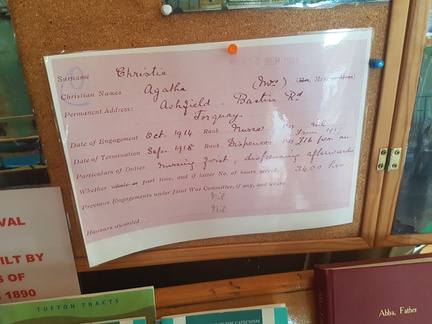 Surname Christie
Christian Names Agatha (Mrs)
Permanent Address: Ashfield - Barton Rd
Torquay.
Date of Engagement Oct. 1914 Rank Nurse Pay
Date of Termination Sept. 1918 Rank Dispenser Pay £16 per an
Particulars of Duties nursing first, dispensing afterwards
Whether whole or part time, and if latter No. of hours served 3400 hrs
Previous Engagements under Joint War Committee, if any, and where
Nil
Honours awarded Nil
VAL
ILT BY
S OF
1890
TUFTON TRACTS
THE CATECHISM
Abba, Father